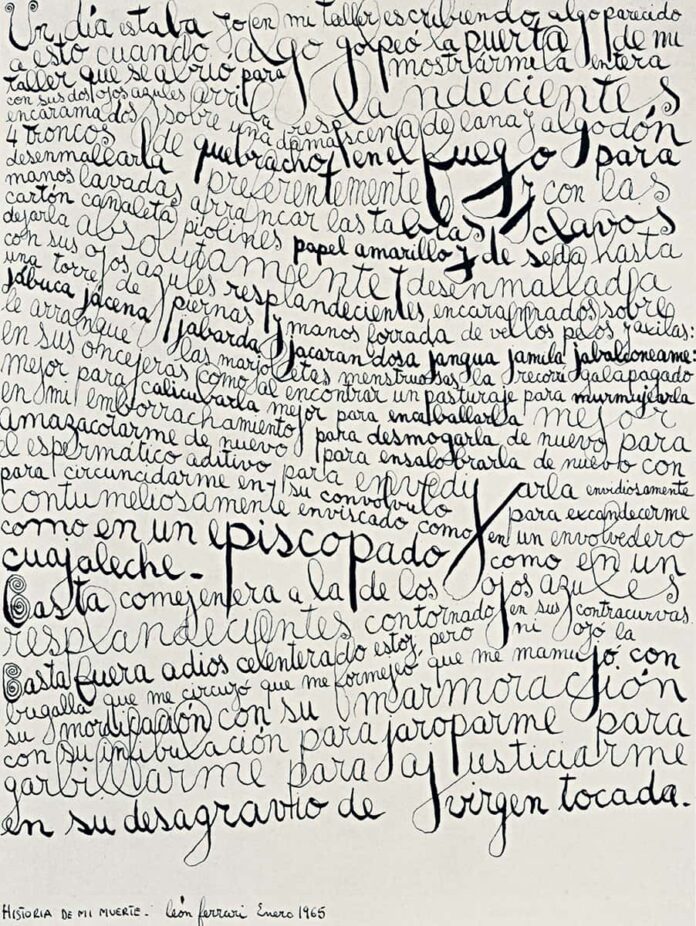 Un día estaba yo en mi taller escribiendo algo parecido
a esto cuando algo golpeó la puerta de mi
taller que se abrió para mostrármela entera
con sus dos ojos azules arri la ndecientes
encaramados sobre una damascena de lana y algodón
4 troncos de quebracho en el fuego para
desenmallarla preferentemente y con las
manos lavadas arrancar las tablas clavos
cartón canaleta piolines papel amarillo y de seda hasta
dejarla absolutamente desenmallada
con sus ojos azules resplandecientes encaramados sobre
una torre de piernas y manos forrada de vellos pelos y axilas:
jabuca jácena jabarda jacarandosa jangua jamila jabaldoneame:
le arranqué las marjoletas menstruosas: la recorrí galapagado
en sus oncejeras como al encontrar un pasturaje para murmujearla
mejor para calicubarla mejor para encaballarla mejor
en mi emborrachamiento para desmogarla de nuevo para
amazacotarme de nuevo para ensalobrarla de nuevo con
el espermático aditivo para envedijarla envidiosamente
para circuncidarme en su convólvulo para excandecerme
contumeliosamente enviscado como en un envolvedero
como en un episcopado y como en un
cuajaleche.-
Basta comejenera a la de los ojos azules
resplandecientes contornado en sus contracurvas
Basta fuera adios celenterado estoy, pero ni ojo la
bugalla que me circuyó que me formejeó que me mamujó. con
su mordicación con su marmoración
con su infibulación para jaroparme para
garbillarme para ajusticiarme
en su desagravio de virgen tocada.
HISTORIA DE MI MUERTE.- león ferrari Enero 1965